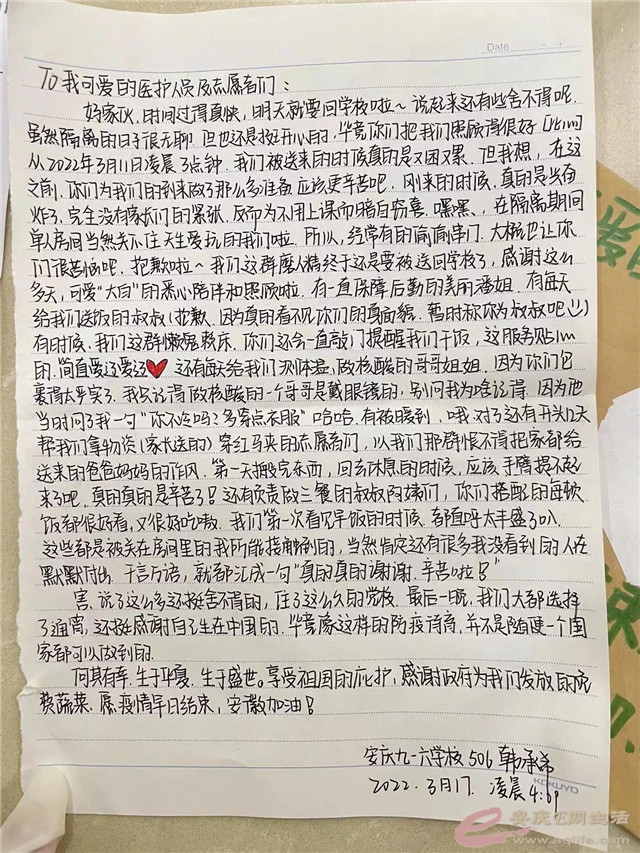 Date
To 我可爱的医护人员及志愿者们：
好家伙，时间过得真快，明天就要回学校啦～说起来还有些舍不得呢，
虽然隔离的日子很无聊 但也还是挺开心的，毕竟你们把我们照顾得很好
从2022年3月11日凌晨3点钟，我们被送来的时候真的是又困又累，但我想，在这
之前，你们为我们的到来做了那么多准备 应该更辛苦吧，刚来的时候，真的是当自
炸了，完全没有家长们的紧张，反而为不用上课而暗自窃喜，嘿嘿、在隔离期间
单人房间当然关不住天生爱玩的我们啦，所以，经常有的偷偷串门，大概也让你
们很苦恼吧，抱歉啦～我们这群磨人精终于还是要被送回学校了，感谢这么
多天，可爱“大白”的悉心陪伴和照顾啦，有一直保障后勤的美丽潘姐，有每天
给我们送饭的叔叔（抱歉，因为真的看不见你们的真面貌，暂时称你为叔叔吧）
有时候，我们这群懒鬼赖床，你们还会一直敲门提醒我们干饭，这服务贴心
的，简直爱了爱了 还有每天给我们测体温，做核酸的哥哥姐姐，因为你们包
裹得太严实了，我只记得做核酸的一个哥哥是戴眼镜的，别问我为啥记得，因为他
当时问了我一句“你不冷吗？多穿点衣服”哈哈，有被暖到，哦，对了还有开头几天
帮我们拿物资（家长送的）穿红马夹的志愿者们，以我们那群恨不得把家都给
送来的爸爸妈妈的作风，第一天搬完东西，回去休息的时候，应该手臂提不起
来了吧，真的真的是辛苦了！还有负责做三餐的叔叔阿姨们，你们搭配的每顿
饭都很好看，又很好吃嗷，我们第一次看见早饭的时候，都直呼太丰盛了叭，
这些都是被关在房间里的我所能接触到的，当然肯定还有很多我没看到的人在
默默付出，千言万语，就都汇成一句“真的真的谢谢，辛苦啦！”
害，说了这么多还挺舍不得的，住了这么久的党校，最后一晚，我们大都选择
了通宵，还挺感谢自己生在中国的，毕竟像这样的防疫待遇，并不是随便一个国
家都可以做到的，
何其有幸，生于华夏，生于盛世。享受祖国的庇护，感谢政府为我们发放的免
费蔬菜，愿疫情早日结束，安徽加油！
安庆九一六学校506 韩承希
2022.3月17. 凌晨4:09
KOKUYO
安庆E网生活
www.aqlife.com